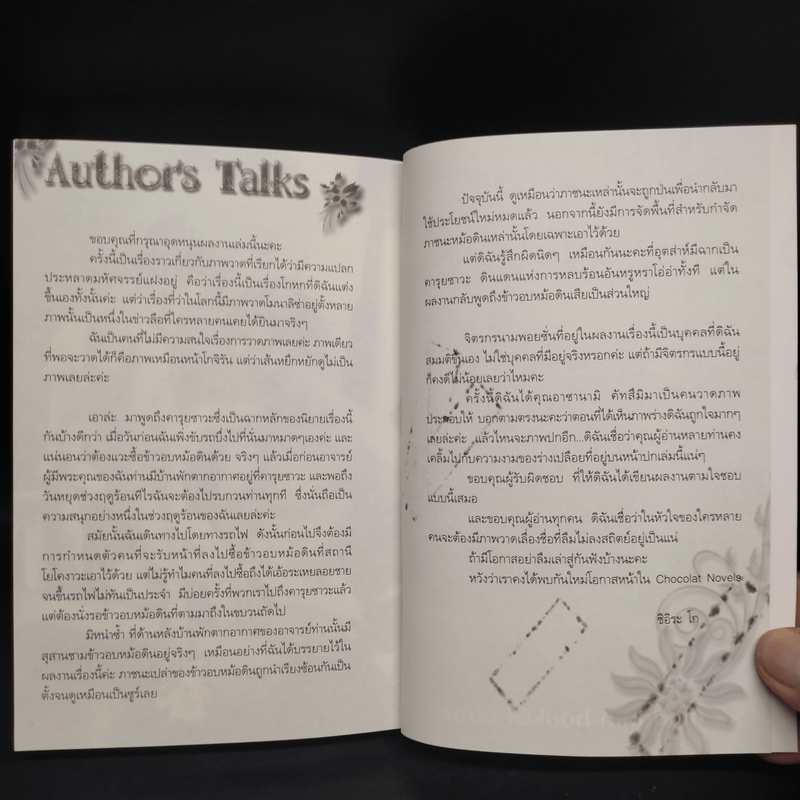 Author's Talks
ขอบคุณที่กรุณาอุดหนุนผลงานเล่มนี้นะคะ
ครั้งนี้เป็นเรื่องราวเกี่ยวกับภาพวาดที่เรียกได้ว่ามีความแปลก
ประหลาดมหัศจรรย์แฝงอยู่ คือว่าเรื่องนี้เป็นเรื่องโกหกที่ดิฉันแต่ง
ขึ้นเองทั้งนั้นค่ะ แต่ว่าเรื่องที่ว่าในโลกนี้มีภาพวาดโมนาลิซ่าอยู่ตั้งหลาย
ภาพนั้นเป็นหนึ่งในข่าวลือที่ใครหลายคนเคยได้ยินมาจริงๆ
ฉันเป็นคนที่ไม่มีความสนใจเรื่องการวาดภาพเลยค่ะ ภาพเดียว
ที่พอจะวาดได้ก็คือภาพเหมือนหน้าโกจิรัน แต่ว่าเส้นหยึกหยักดูไม่เป็น
ภาพเลยล่ะค่ะ
เอาล่ะ มาพูดถึงคารุยซาวะซึ่งเป็นฉากหลักของนิยายเรื่องนี้
กันบ้างดีกว่า เมื่อวันก่อนฉันเพิ่งขับรถบึ่งไปที่นั่นมาหมาดๆเองค่ะ และ
แน่นอนว่าต้องแวะซื้อข้าวอบหม้อดินด้วย จริงๆ แล้วเมื่อก่อนอาจารย์
ผู้มีพระคุณของฉันท่านมีบ้านพักตากอากาศอยู่ที่คารุยซาวะ และพอถึง
วันหยุดช่วงฤดูร้อนทีไรฉันจะต้องไปรบกวนท่านทุกที ซึ่งนั่นถือเป็น
ความสนุกอย่างหนึ่งในช่วงฤดูร้อนของฉันเลยล่ะค่ะ
สมัยนั้นฉันเดินทางไปโดยทางรถไฟ ดังนั้นก่อนไปจึงต้องมี
การกำหนดตัวคนที่จะรับหน้าที่ลงไปซื้อข้าวอบหม้อดินที่สถานี
โยโคงาวะเอาไว้ด้วย แต่ไม่รู้ทำไมคนที่ลงไปซื้อถึงได้เอ้อระเหยลอยชาย
จนขึ้นรถไฟไม่ทันเป็นประจำ มีบ่อยครั้งที่พวกเราไปถึงคารุยซาวะแล้ว
แต่ต้องนั่งรอข้าวอบหม้อดินที่ตามมาถึงในขบวนถัดไป
มิหนำซ้ำ ที่ด้านหลังบ้านพักตากอากาศของอาจารย์ท่านนั้นมี
สุสานชามข้าวอบหม้อดินอยู่จริงๆ เหมือนอย่างที่ฉันได้บรรยายไว้ใน
ผลงานเรื่องนี้ค่ะ ภาชนะเปล่าของข้าวอบหม้อดินถูกนำเรียงซ้อนกันเป็น
ตั้งจนดูเหมือนเป็นซูร์เลย
ปัจจุบันนี้ ดูเหมือนว่าภาชนะเหล่านั้นจะถูกป่นเพื่อนำกลับมา
ใช้ประโยชน์ใหม่หมดแล้ว นอกจากนี้ยังมีการจัดพื้นที่สำหรับกำจัด
ภาชนะหม้อดินเหล่านั้นโดยเฉพาะเอาไว้ด้วย
แต่ดิฉันรู้สึกผิดนิดๆ เหมือนกันนะคะที่อุตส่าห์มีฉากเป็น
คารุยซาวะ ดินแดนแห่งการหลบร้อนอันหรูหราโอ่อ่าทั้งที แต่ใน
ผลงานกลับพูดถึงข้าวอบหม้อดินเสียเป็นส่วนใหญ่
จิตรกรนามพอยซั่นที่อยู่ในผลงานเรื่องนี้เป็นบุคคลที่ดิฉัน
สมมติขึ้นเอง ไม่ใช่บุคคลที่มีอยู่จริงหรอกค่ะ แต่ถ้ามีจิตรกรแบบนี้อยู่
ก็คงดีไม่น้อยเลยว่าไหมคะ
ครั้งนี้ดิฉันได้คุณอาซานามิ คัทสึมิมาเป็นคนวาดภาพ
ประกอบให้ บอกตามตรงนะคะว่าตอนที่ได้เห็นภาพร่างดิฉันถูกใจมากๆ
เลยล่ะค่ะ แล้วไหนจะภาพปกอีก...ดิฉันเชื่อว่าคุณผู้อ่านหลายท่านคง
เคลิ้มไปกับความงามของร่างเปลือยที่อยู่บนหน้าปกเล่มนี้แน่ๆ
ขอบคุณผู้รับผิดชอบ ที่ให้ดิฉันได้เขียนผลงานตามใจชอบ
แบบนี้เสมอ
และขอบคุณผู้อ่านทุกคน ดิฉันเชื่อว่าในหัวใจของใครหลาย
คนจะต้องมีภาพวาดเลื่องชื่อที่ลืมไม่ลงสถิตย์อยู่เป็นแน่
ถ้ามีโอกาสอย่าลืมเล่าสู่กันฟังบ้างนะคะ
หวังว่าเราคงได้พบกันใหม่โอกาสหน้าใน Chocolat Novels
ชิอิระ โก